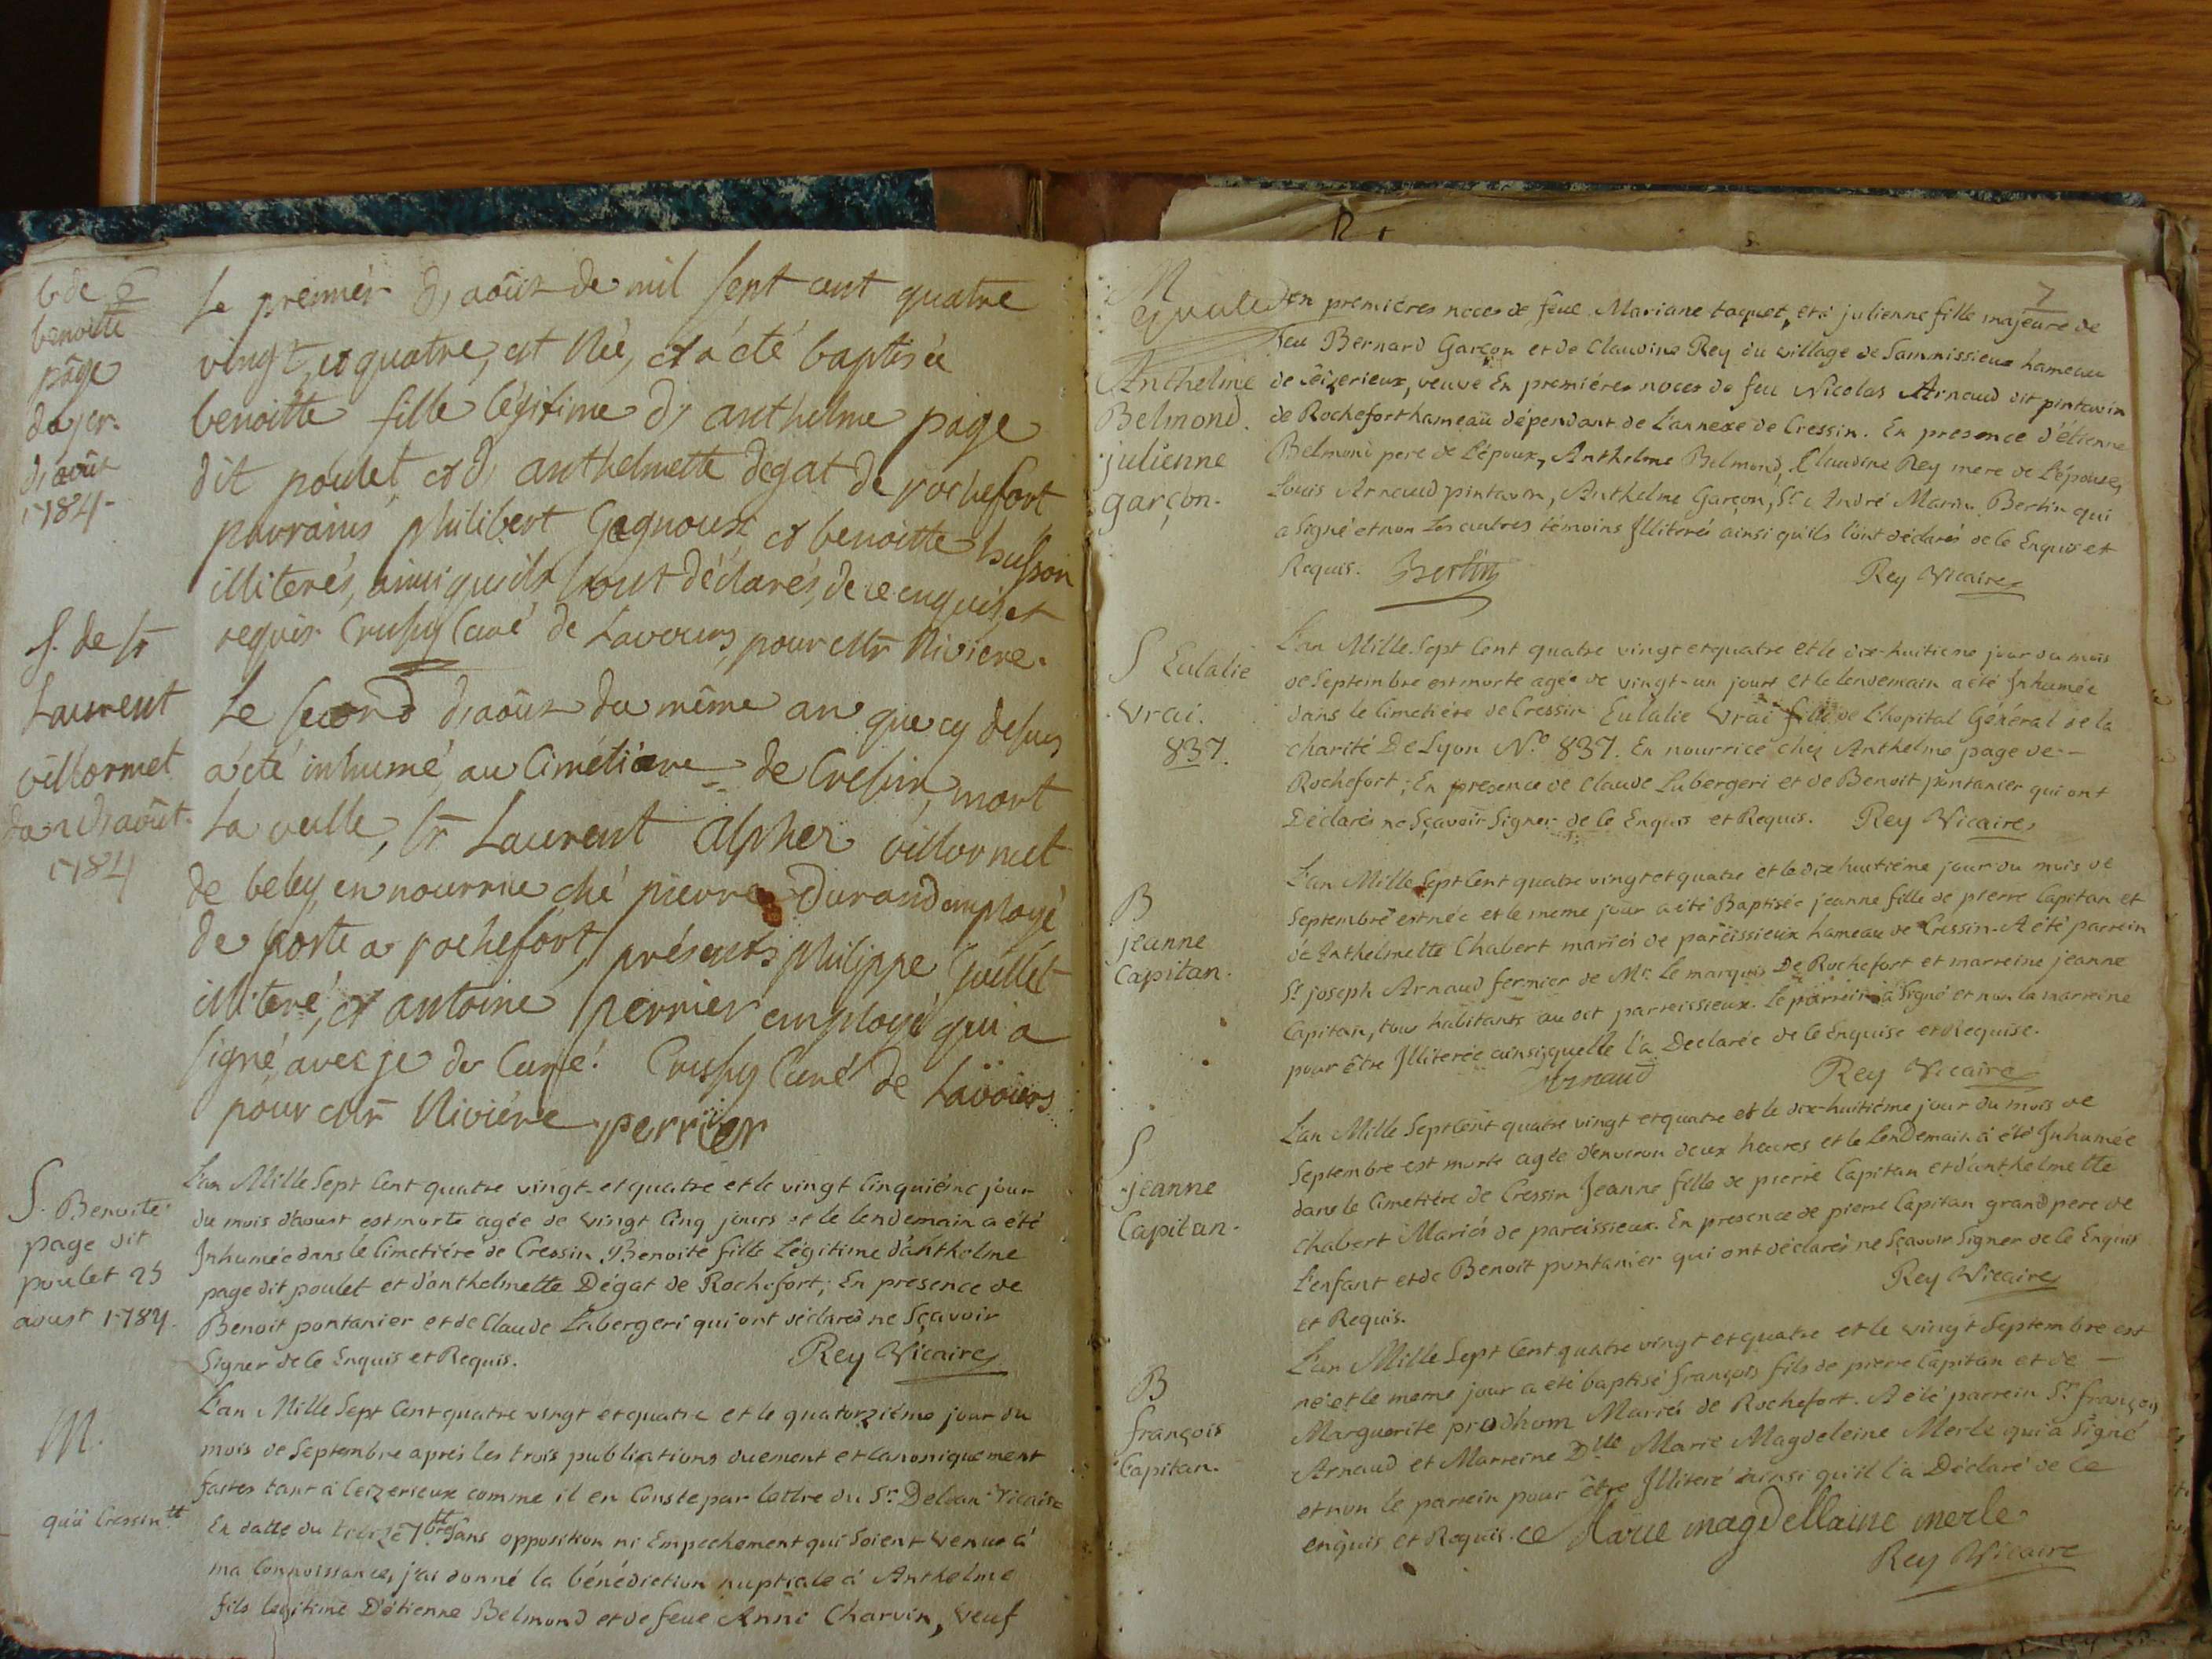 b de 6
benoitte
page
du jer.
d'août
1784-
Le premier d'août de mil sept cent quatre
vingt, et quatre, est née, et a été baptisée
benoitte fille légitime d'anthelme page
dit poulet, et d'anthelmette degat de rochefort
parrains philibert Gagnoux et benoitte husson
illiterés, ainsi qu'ils l'ont déclarés, de ce enquis, et
requis. Crussy Curé de Lavours, pour Mr Riviere.
S. de sr
Laurent
villormet
du 2 d'août.
1784
Le second d'août du même an que cy dessus
a été inhumé, au Cimétière de Cressin, mort
La veille, sr Laurent alpher villormet
de beley, en nourrice ché pierre Durand employé
de poste a rochefort, présents philippe Juillet
illiteré, et antoine perrier employé qui a
signé, avec je dt Curé. Crussy Curé de Lavours
pour Mr Riviére perrier
S. Benoite
page dit
poulet 25
aoust 1784.
L'an Mille Sept Cent quatre vingt-et quatre et le vingt Cinquiéme jour
du mois d'aoust est morte agée de vingt Cinq jours et le lendemain a été
Inhumée dans le Cimetiére de Cressin, Benoite fille Légitime d'anthelme
page dit poulet et d'anthelmette Dégat de Rochefort; En presence de
Benoit pontanier et de Claude Labergeri qui ont déclarés ne Sçavoir
Signer de Ce Enquis et Requis. Rey Vicaire
M.
L'an Mille Sept Cent quatre vingt et quatre et le quatorziéme jour du
mois de Septembre aprés les trois publications duement et canoniquement
faites tant à Ceizerieux comme il en Conste par lettre du Sr. Deloan Vicaire
qu'à Cressin
En datte du treize 7bre Sans opposition ni Empechement qui Soient venue à
ma Connoissance, j'ai donné la bénédiction nuptiale à Anthelme
fils legitime D'étienne Belmond et de feue Anne Charvin, veuf
7
M
Anthelme
Belmond.
julienne
garçon.
en premiéres noces de feue Mariane taquet, et à julienne fille majeure de
feu Bernard Garçon et de Claudine Rey du village de Sammissieux hameau
de Ceizerieux, veuve En premiéres noces de feu Nicolas Arnaud dit pintavin
de Rochefort hameau dépendant de L'annexe de Cressin. En presence d'étienne
Belmond pere de L'époux, Anthelme Belmond, Claudine Rey mere de L'épouse,
Louis Arnaud pintavin, Anthelme Garçon, Sr. André Marin Bertin qui
a Signé et non Les autres témoins Illiterés ainsi qu'ils l'ont déclarés de Ce Enquis et
Requis. Bertin Rey Vicaire
S Eulalie
Vrai.
837.
L'an Mille Sept Cent quatre vingt et quatre et le dix-huitiéme jour du mois
de Septembre est morte agée de vingt-un jours et le lendemain a été Inhumée
dans le Cimetiére de Cressin Eulalie Vrai fille de L'hopital Général de la
charité De Lyon No. 837. En nourrice chez Anthelme page de -
Rochefort; En presence de Claude Labergeri et de Benoit pontanier qui ont
Déclarés ne Sçavoir Signer de Ce Enquis et Requis. Rey Vicaire
B
jeanne
Capitan.
L'an Mille Sept Cent quatre vingt et quatre et le dix huitiéme jour du mois de
Septembre est née et le meme jour a été Baptisée jeanne fille de pierre Capitan et
de Anthelmette Chabert mariés de pareissieux hameau de Cressin. A été parrein
Sr. joseph Arnaud fermier de Mr. Le marquis De Rochefort et marreine jeanne
Capitan, tous habitants au dit parreissieux. Le parrein a Signé et non la marreine
pour être Illiterée ainsi quelle l'a Declarée de Ce Enquise et Requise.
Arnaud Rey Vicaire
S
jeanne
Capitan.
L'an Mille Sept Cent quatre vingt et quatre et le dix-huitiéme jour du mois de
Septembre est morte agée d'environ deux heures et le LenDemain a été Inhumée
dans le Cimetiére de Cressin Jeanne fille de pierre Capitan et d'anthelmette
Chabert Mariés de pareissieux. En presence de pierre Capitan grand pere de
L'enfant et de Benoit pontanier qui ont déclarés ne Sçavoir Signer de Ce Enquis
et Requis. Rey Vicaire
B
françois
Capitan.
L'an Mille Sept Cent quatre vingt et quatre et le vingt Septembre est
né et le meme jour a été baptisé françois fils de pierre Capitan et de -
Marguerite prodhom Mariés de Rochefort. A été parrein Sr. françois
Arnaud et Marreine Dlle Marie Magdeleine Merle qui a Signé
et non le parrein pour être Illiteré ainsi qu'il l'a Déclaré de Ce
enquis et Requis. Marie magdellaine merle
Rey Vicaire